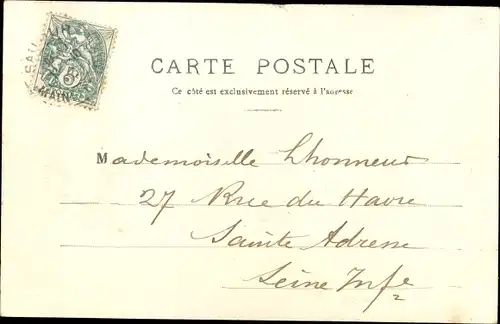 5
CARTE POSTALE
Ce côté est exclusivement réservé à l'adresse
Mademoiselle Lhonneur
27 Rue du Havre
Sainte Adresse
Seine Infe